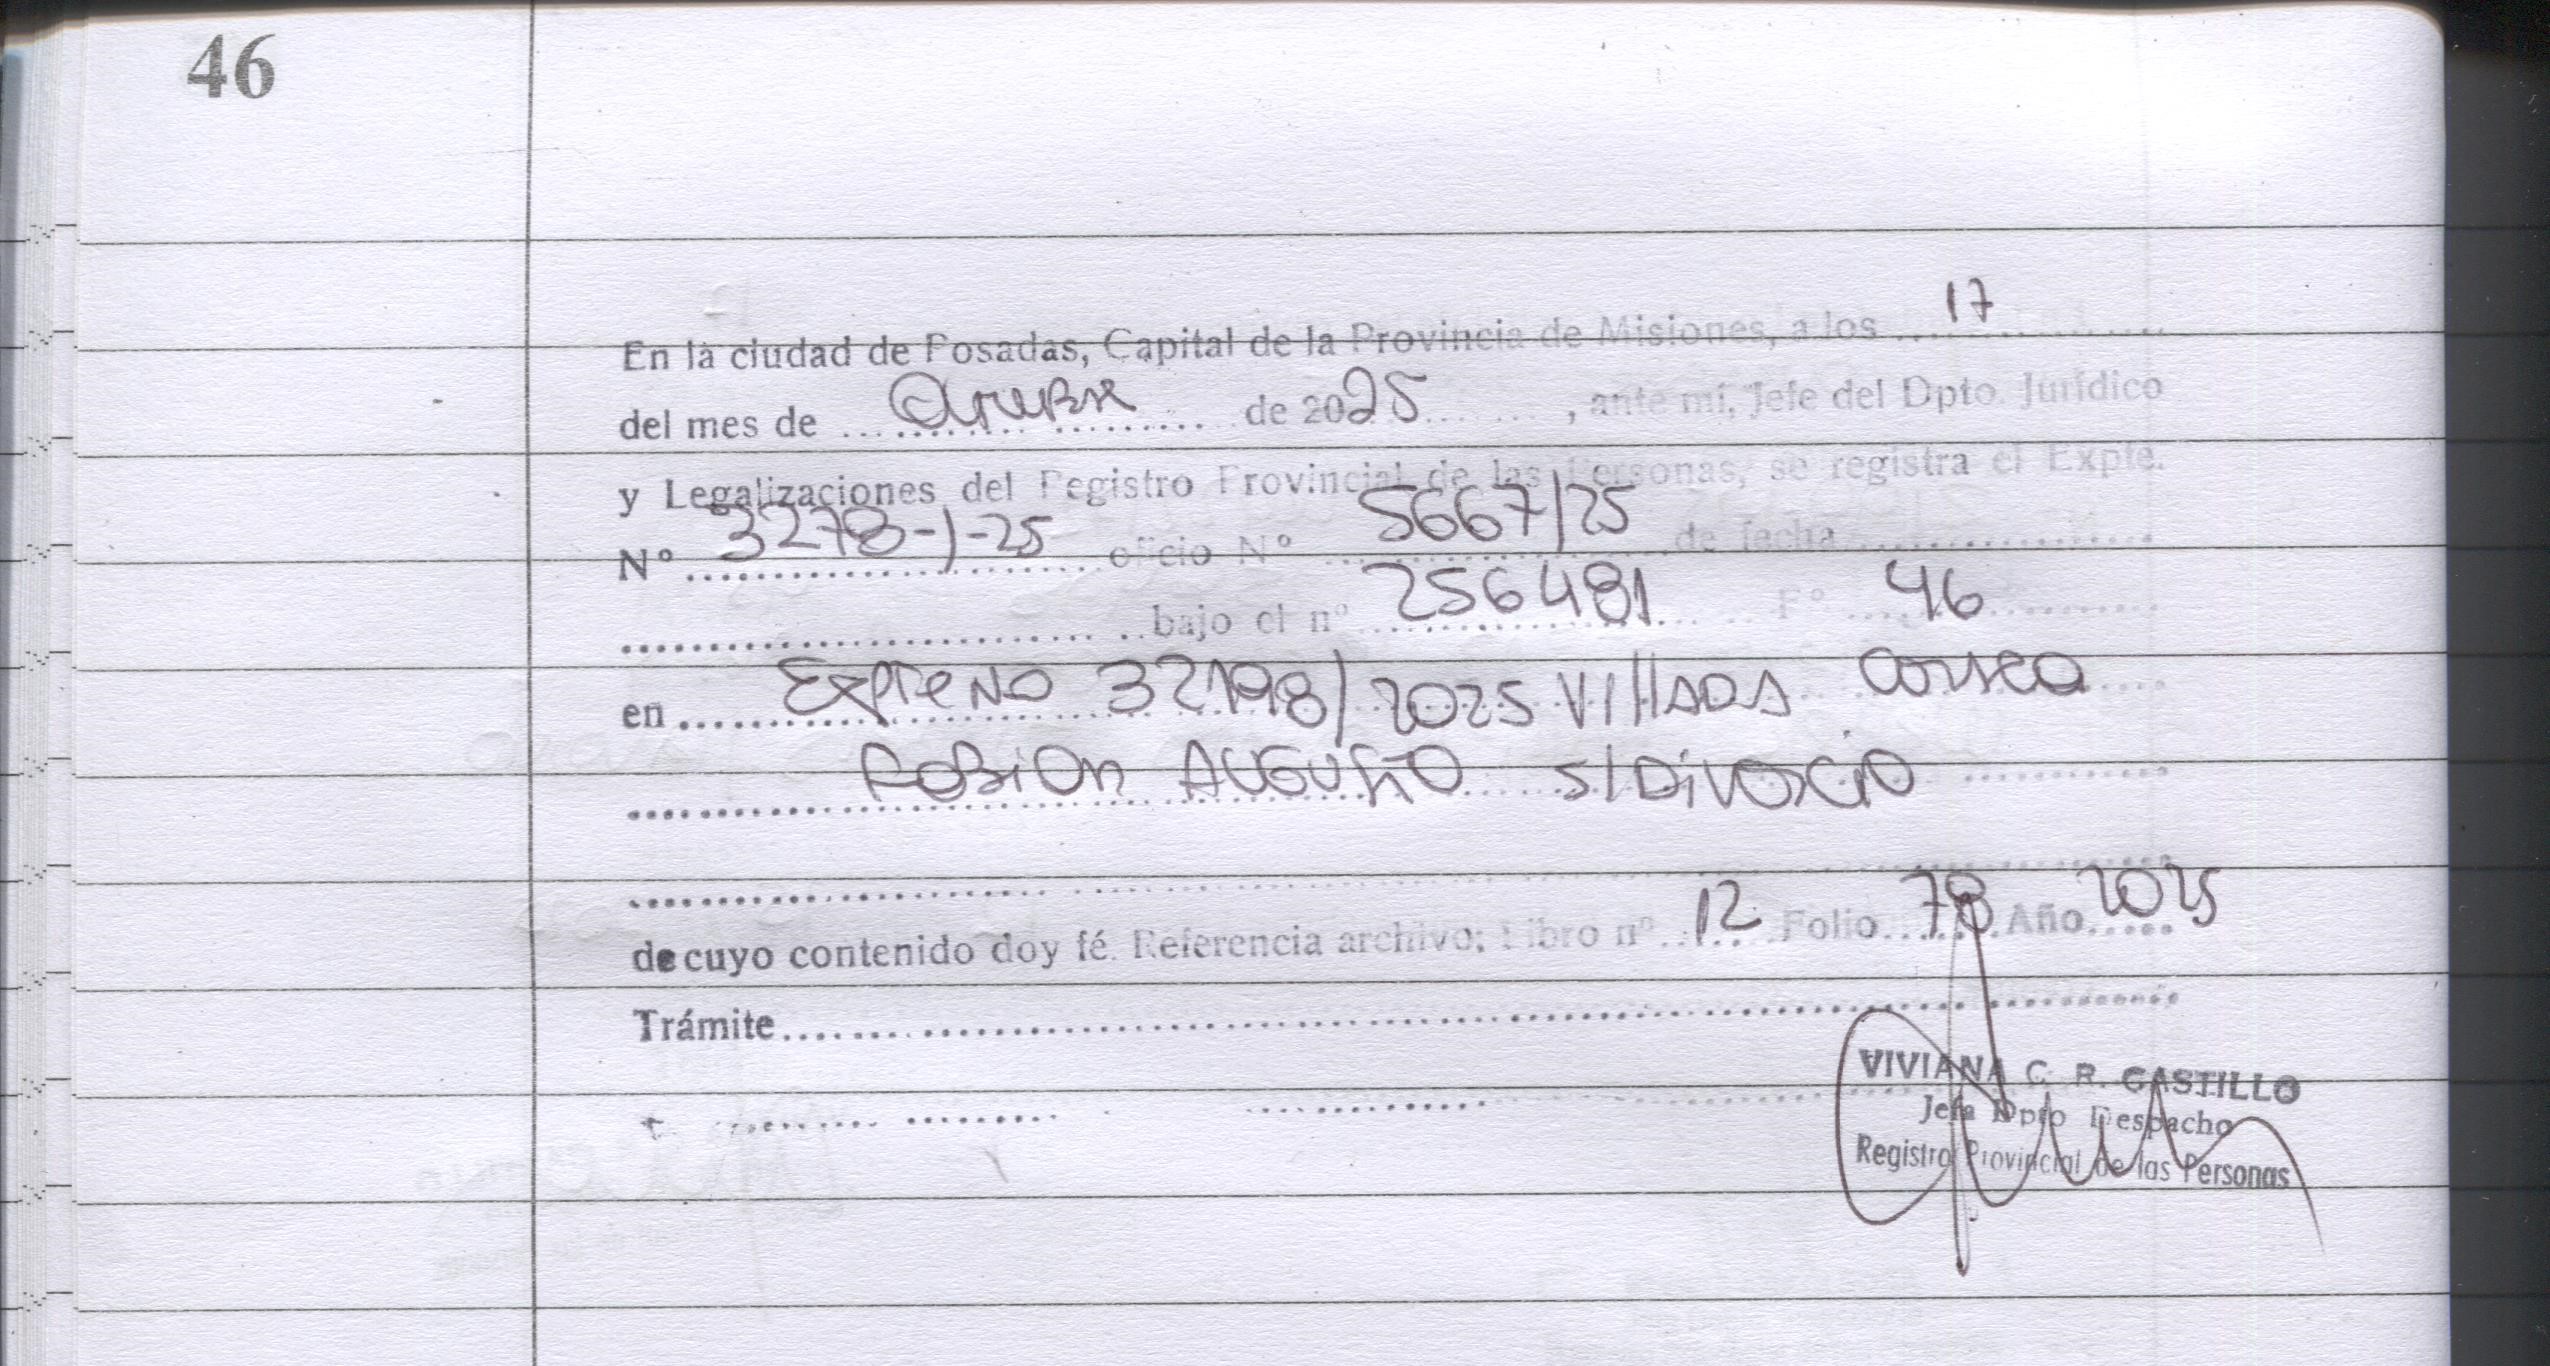 46
En la ciudad de Posadas, Capital de la Provincia de Misiones, a los 17
del mes de Octubre de 2025, ante mi, Jefe del Dpto. Jurídico
y Legalizaciones del Registro Provincial de las Personas, se registra el Expte.
N° 3278-J-25 oficio N° 5667/25 de fecha
bajo el n° 256481 F° 46
en Expte No 32198/2025 Villada Correa
Fabian Augusto s/Divorcio
de cuyo contenido doy fé. Referencia archivo: Libro n° 12 Folio 78 Año 2025
Trámite
VIVIANA C. R. CASTILLO
Jefa Dpto Despacho
Registro Provincial de las Personas